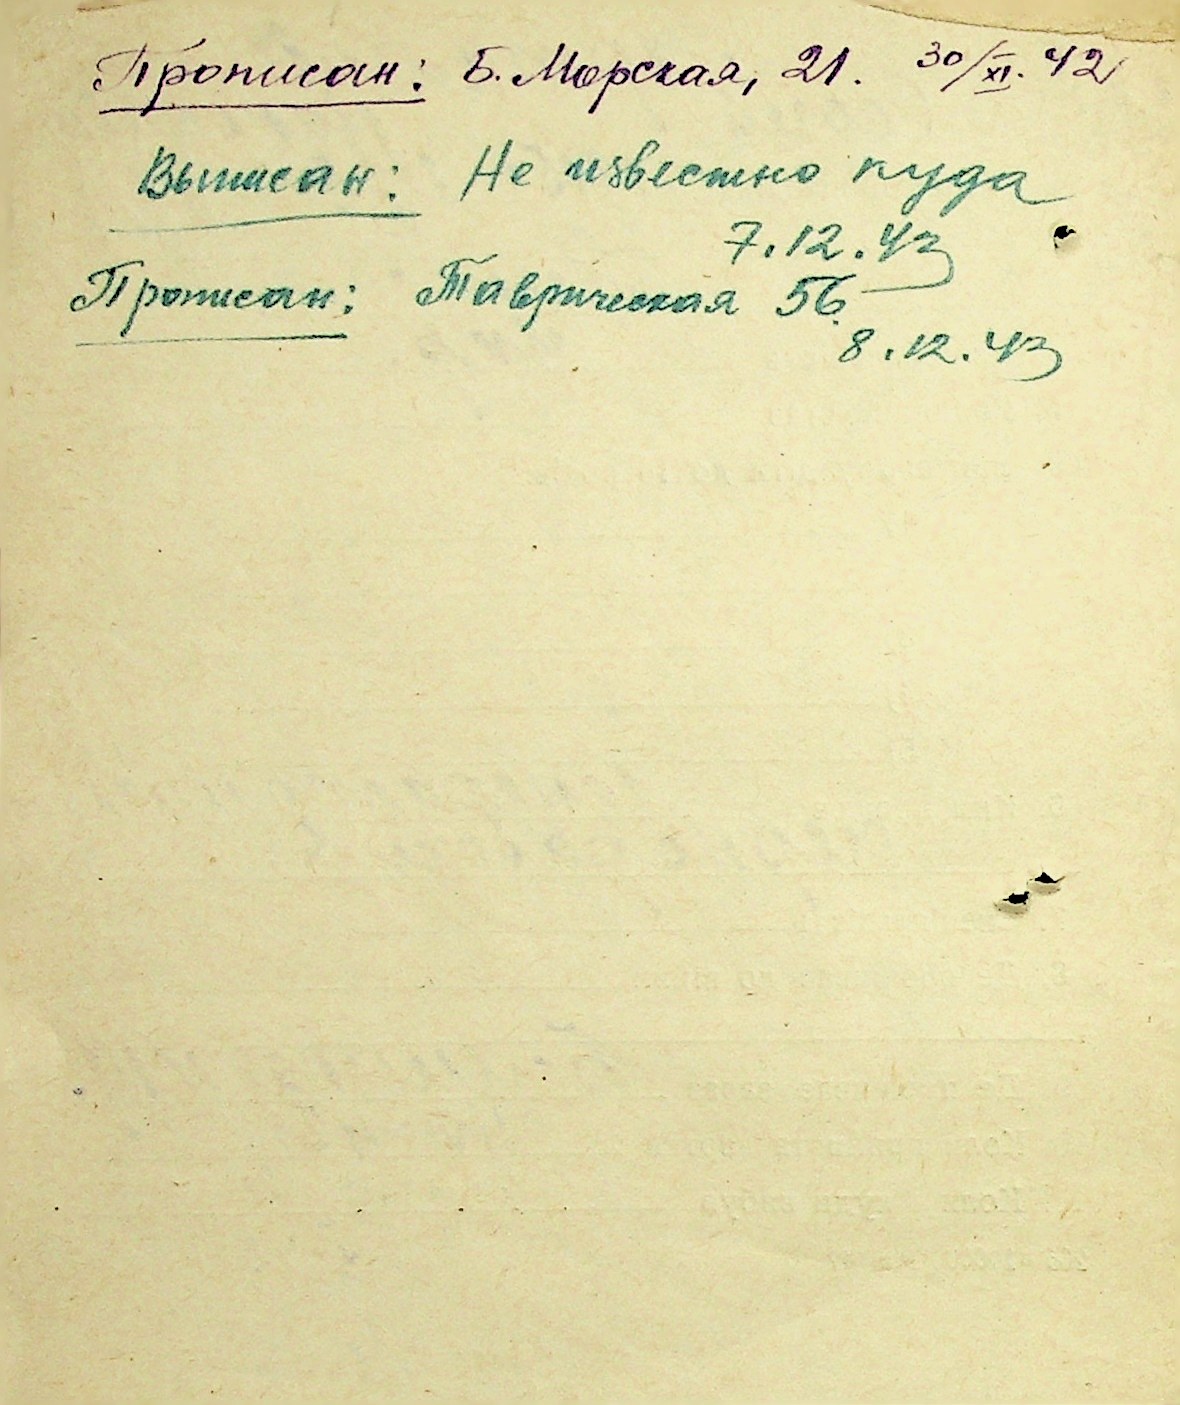 Прописан: Б. Морская, 21. 30/XI. 42
Выписан: Не известно куда
7.12.43
Прописан: Таврическая 56.
8.12.43